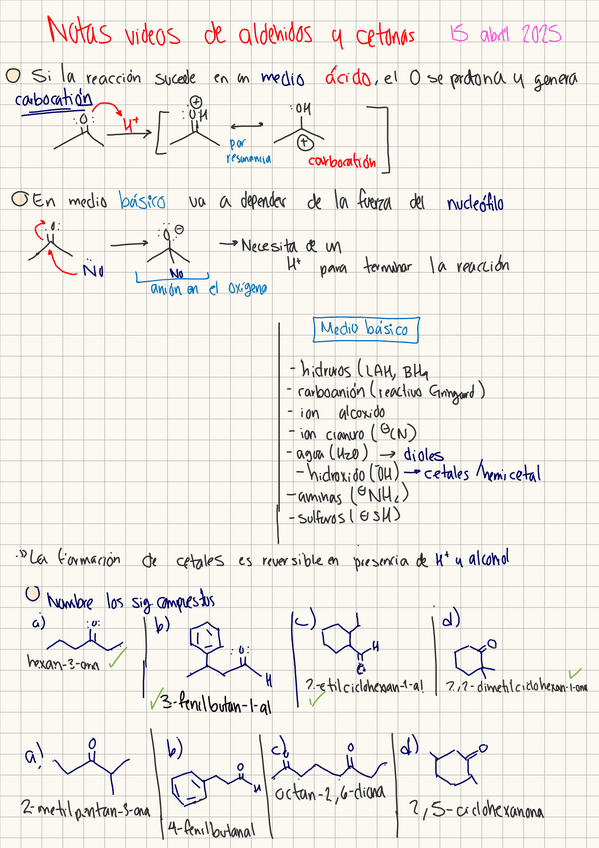 Notas videos de aldehidos y cetonas 15 abril 2025
Si la reacción sucede en un medio ácido, el O se protona y genera
carbocatión
:O: H⁺ ⊕ :ÖH :OH
por
resonancia
⊕
carbocatión
En medio básico va a depender de la fuerza del nucleófilo
:O: N̈u :Ö: ⊖ Nu → Necesita de un
H⁺ para terminar la reacción
anión en el oxígeno
Medio básico
- hidruros (LAH, BH4
- carboanión (reactivo Gringard)
- ion alcoxido
- ion cianuro (⊖CN)
- agua (H2O) → dioles
- hidroxido (⁻OH) → cetales /hemicetal
- aminas (⊖NH2)
- sulfuros (⊖SH)
La formación de cetales es reversible en presencia de H⁺ y alcohol
Nombre los sig compuestos
a) b) c) d)
:O: :O: H O H O
hexan-3-ona ✓
✓ 3-fenilbutan-1-al
2-etilciclohexan-1-al ✓
2,2-dimetilciclohexan-1-ona ✓
a) b) c) d)
O O H O O O
2-metilpentan-3-ona
4-fenilbutanal
octan-2,6-diona
2,5-ciclohexanona